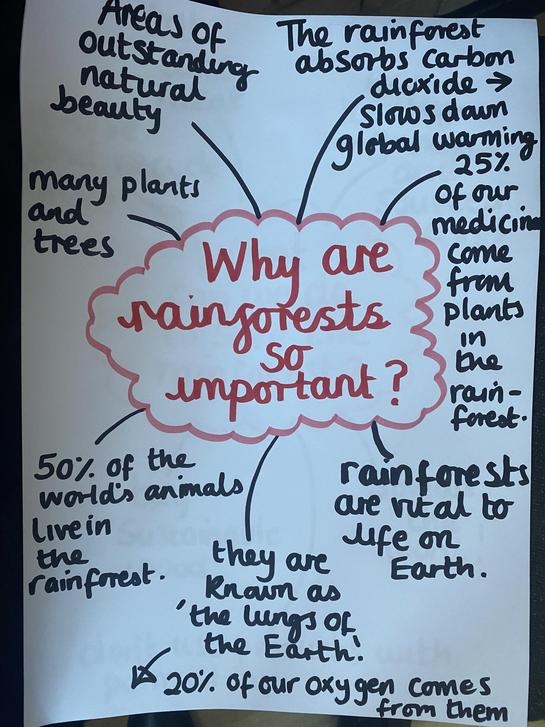 Why are
rainforests
so
important?
Areas of
outstanding
natural
beauty
The rainforest
absorbs carbon
dioxide →
slows down
global warming
25%
of our
medicine
come
from
plants
in
the
rain-
forest.
rainforests
are vital to
life on
Earth.
they are
known as
'the lungs of
the Earth'.
20% of our oxygen comes
from them
50% of the
world's animals
live in
the
rainforest.
many plants
and
trees